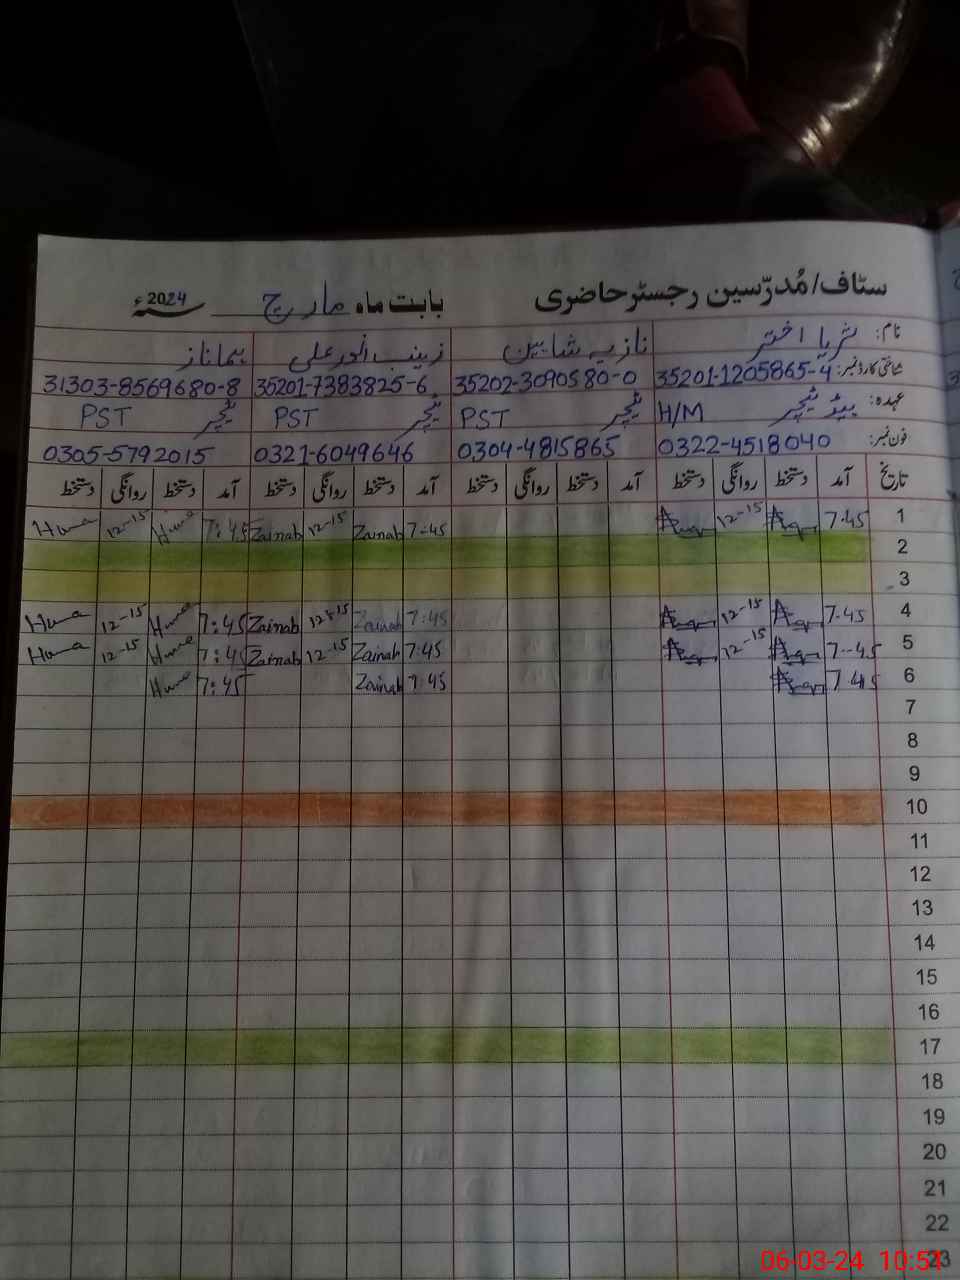 سٹاف/مُدرّسین رجسٹر حاضری بابت ماہ مارچ 2024ء
نام: ثریا اختر نازیہ شاہین زینب انور علی ہما ناز
شناختی کارڈ نمبر: 35201-1205865-4 35202-3090580-0 35201-7383825-6 31303-8569680-8
عہدہ: ہیڈ ٹیچر H/M ٹیچر PST ٹیچر PST ٹیچر PST
فون نمبر: 0322-4518040 0304-4815865 0321-6049646 0305-5792015
تاریخ آمد دستخط روانگی دستخط آمد دستخط روانگی دستخط آمد دستخط روانگی دستخط آمد دستخط روانگی دستخط
1 7.45 12-15 7:45 Zainab 12-15 Zainab 7:45 Huma 12-15 Huma
2
3
4 7.45 12-15 7:45 Zainab 12-15 Zainab 7:45 Huma 12-15 Huma
5 7-45 12-15 7:45 Zainab 12-15 Zainab 7:45 Huma 12-15 Huma
6 7.45 7:45 Zainab 7:45 Huma
7
8
9
10
11
12
13
14
15
16
17
18
19
20
21
22
23
06-03-24 10:51